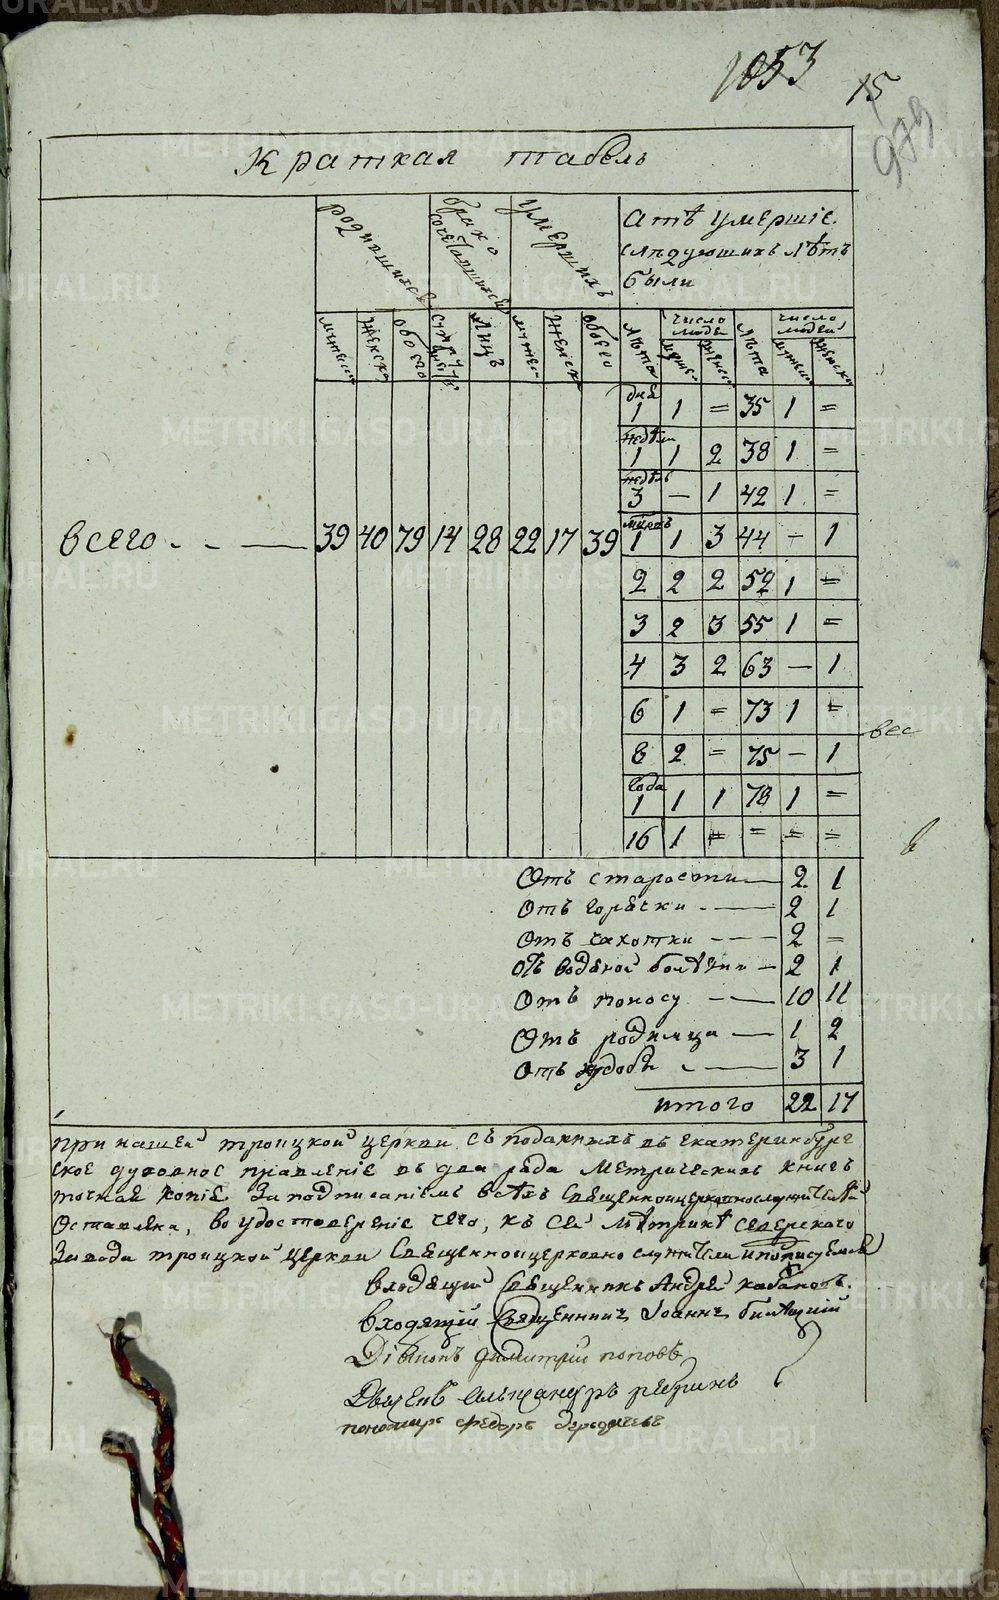 1053
15
979
Краткая табель
родившихся
брако сочетавшихся
умершихъ
а тѣ умершіе
слѣдующихъ лѣтъ
были
мужеска
женска
обоего
лицъ
мужес
женска
обоего
лѣта
число людей
лѣта
число людей
дня 1 1 = 35 1 =
недѣли 1 1 2 38 1 =
недѣль 3 — 1 42 1 =
всего - - — 39 40 79 14 28 22 17 39 1 1 3 44 — 1
2 2 2 52 1 =
3 2 3 55 1 =
4 3 2 63 — 1
6 1 = 73 1 =
вес
8 2 = 75 — 1
года 1 1 1 78 1 =
16 1 = = = =
Отъ старости — 2 1
Отъ горячки - — 2 1
Отъ чахотки - — 2 =
Отъ водяной болѣзни — 2 1
Отъ поносу - — 10 11
Отъ родимца — 1 2
Отъ худобы - — 3 1
итого 22 17
При нашей троицкой церкви съ поданныхъ въ екатеринбург
ское духовное правленіе въ два ряда метрическихъ книгъ
точная копія за подписаніемъ всѣхъ священноицерковнослужителей
Оставлена, во удостовереніе чего, къ сей метрикѣ северского
завода троицкой церкви священноицерковно служители и подписуемся
входящій Священникъ Андрей кабаковъ.
входящій Священникъ Іоаннъ
Діаконъ Димитрій поповъ
Дьячекъ александръ
пономарь Федоръ